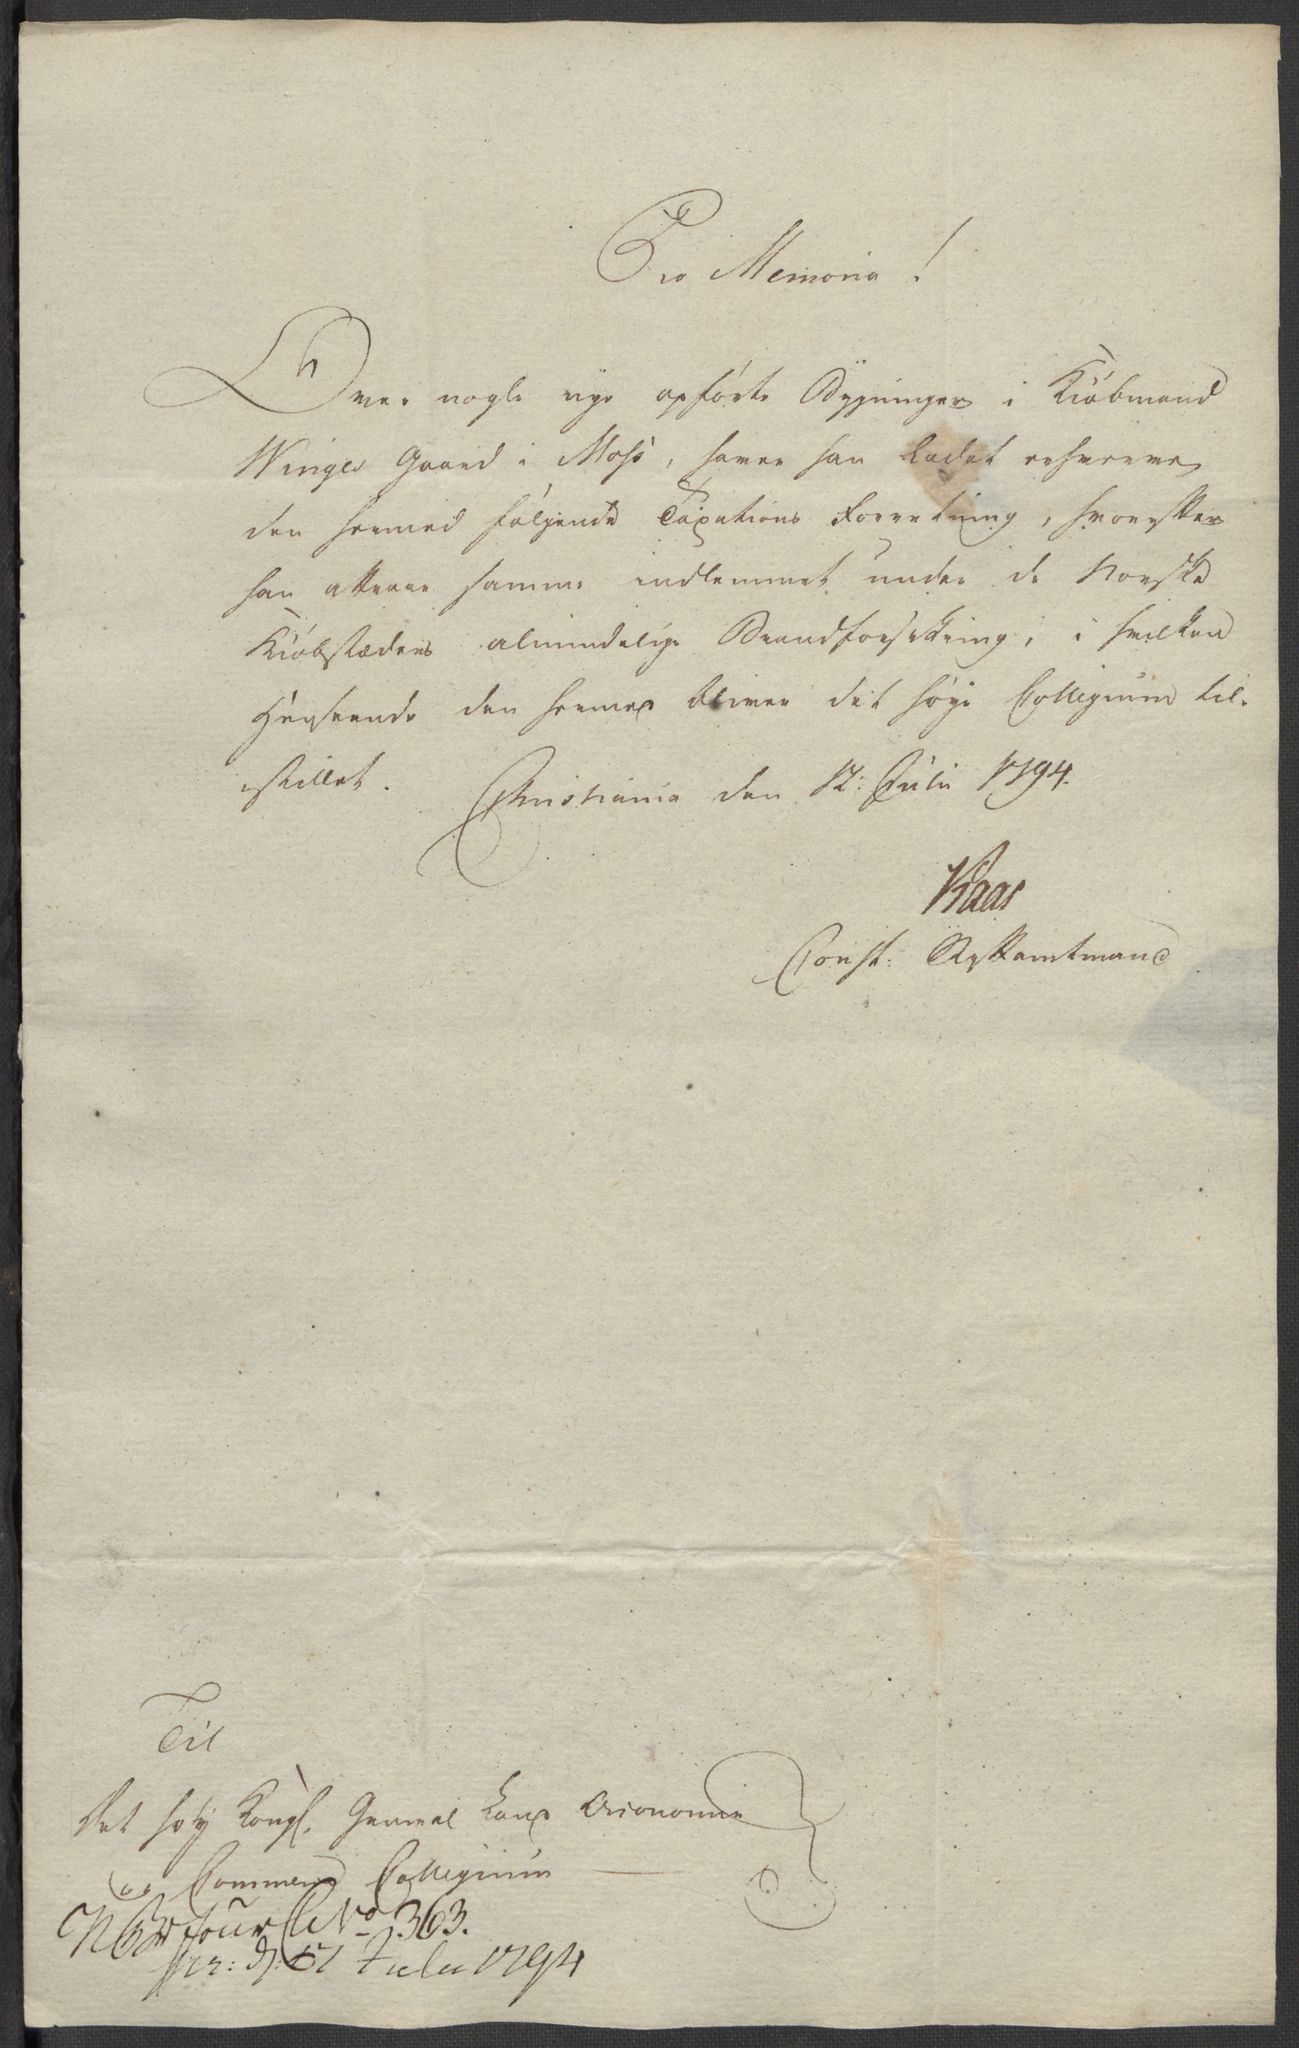 Pro Memoria!
Over nogle nye opförte Bygninger i Kiöbmand
Winges Gaard i Moss, haver han ladet erhverve
den hermed fölgende Taxations Forretning, hvorefter
han attraaer samme indlemmet under de Norske
Kiöbstæders almindelige Brandforsikring, i hvilken
Henseende den hermed bliver det höye Collegium til-
stillet. Christiania den 12: Julii 1794.
Kaas
Const. Stiftamtmand
Til
Det höy Kongl. General Land Oeconomie
og Commerce Collegium
Jour No 363.
d: Julii 1794